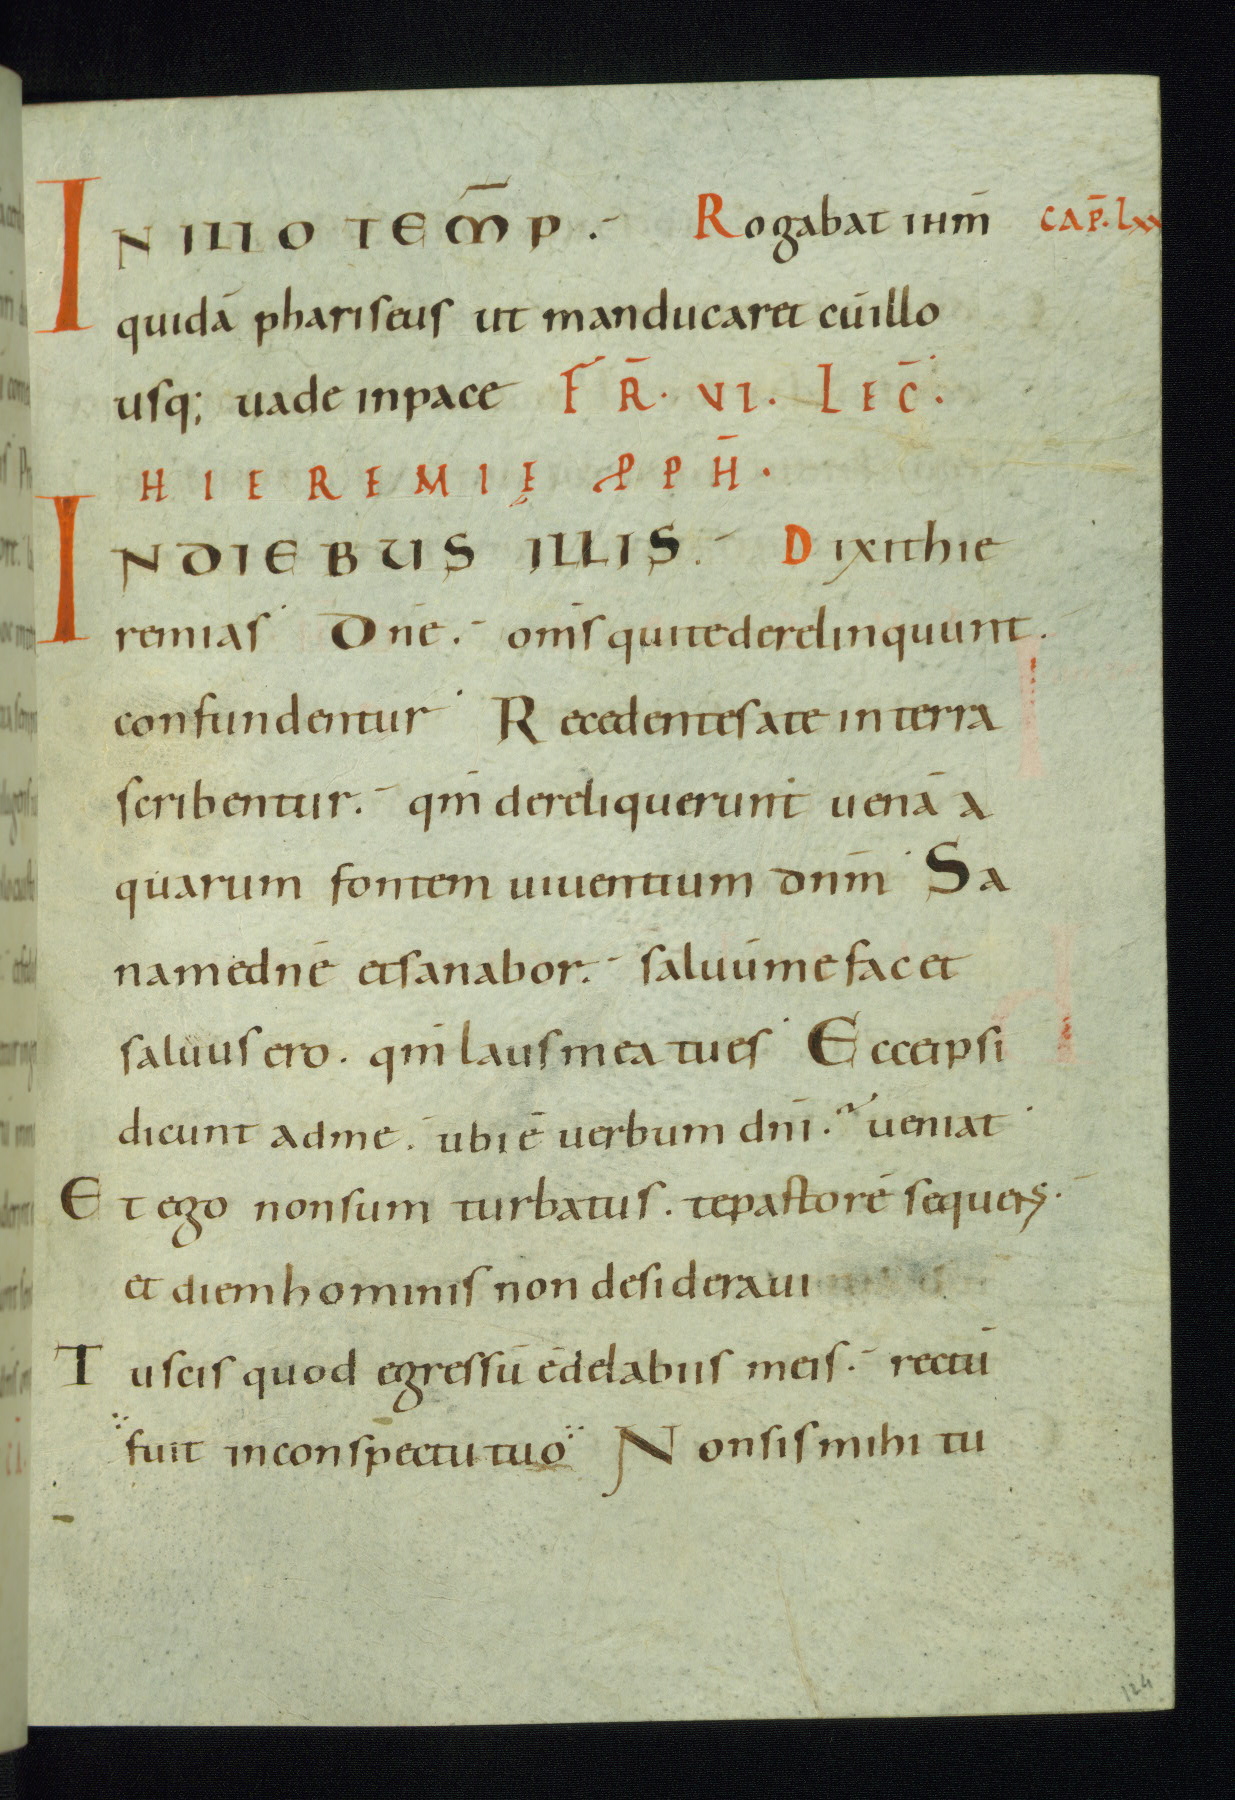 IN ILLO TEMP̄. Rogabat ihm̄ CAP̄. LXX
quidā phariseus ut manducaret cū illo
usq; uade inpace FR̄. VI. LEC̄.
HIEREMIĘ PPH̄.
IN DIEBUS ILLIS. Dixit hie
remias Dn̄e. om̄s qui te derelinquunt.
confundentur Recedentes a te in terra
scribentur. qm̄ dereliquerunt uenā a
quarum fontem uiuentium dn̄m Sa
na me dn̄e et sanabor. saluū me fac et
saluus ero. qm̄ laus mea tu es Ecce ipsi
dicunt ad me. ubi ē uerbum dn̄i. ueniat
Et ego non sum turbatus. te pastorē sequens.
et diem hominis non desideraui
Tu scis quod egressū ē de labiis meis. rectū
fuit in conspectu tuo Non sis mihi tu
124